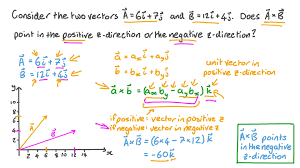 Consider the two vectors A⃗ = 6i⃗ + 7j⃗ and B⃗ = 12i⃗ + 4j⃗. Does A⃗ × B⃗
point in the positive z-direction or the negative z-direction?
A⃗ = 6i⃗ + 7j⃗
B⃗ = 12i⃗ + 4j⃗
a⃗ = aₓi⃗ + aᵧj⃗
b⃗ = bₓi⃗ + bᵧj⃗
unit vector in
positive z-direction
a⃗ × b⃗ = (aₓbᵧ - aᵧbₓ) k⃗
if positive: vector in positive z
if negative: vector in negative z
A⃗ × B⃗ = (6×4 - 7×12) k⃗
= -60k⃗
A⃗ × B⃗ points
in the negative
z-direction
y
A⃗
B⃗
0 2 4 6 8 10 12 14 x